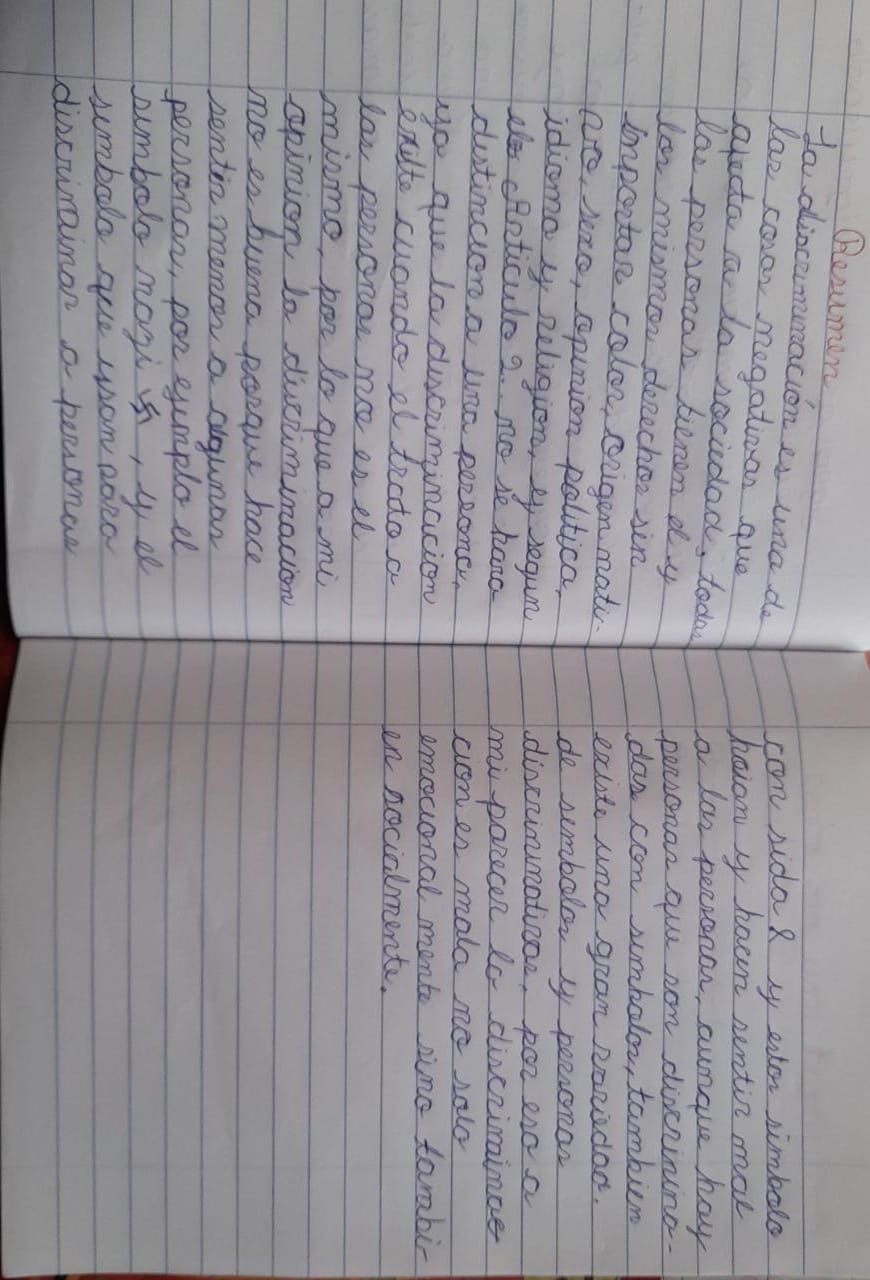 Resumen
La discriminación es una de
las cosas negativas que
afecta a la sociedad, todas
las personas tienen el y
los mismos derechos sin
importar color, origen nati-
vo, sexo, opinion politica,
idioma y religion, y segun
el Articulo 2. no se hara
distincion a una persona,
ya que la discriminacion
existe cuando el trato a
las personas no es el
mismo, por lo que a mi
opinion la discriminacion
no es buena porque hace
sentir menos a algunas
personas, por ejemplo el
simbolo nazi 卐, y el
simbolo que usan para
discriminar a personas
con sida & y estos simbolo
haian y hacen sentir mal
a las personas, aunque hay
personas que son discrimina-
das con simbolos, tambien
existe una gran variedad.
de simbolos y personas
discriminativas, por eso a
mi parecer la discrimina
cion es mala no solo
emocional mente sino tambi-
en socialmente.